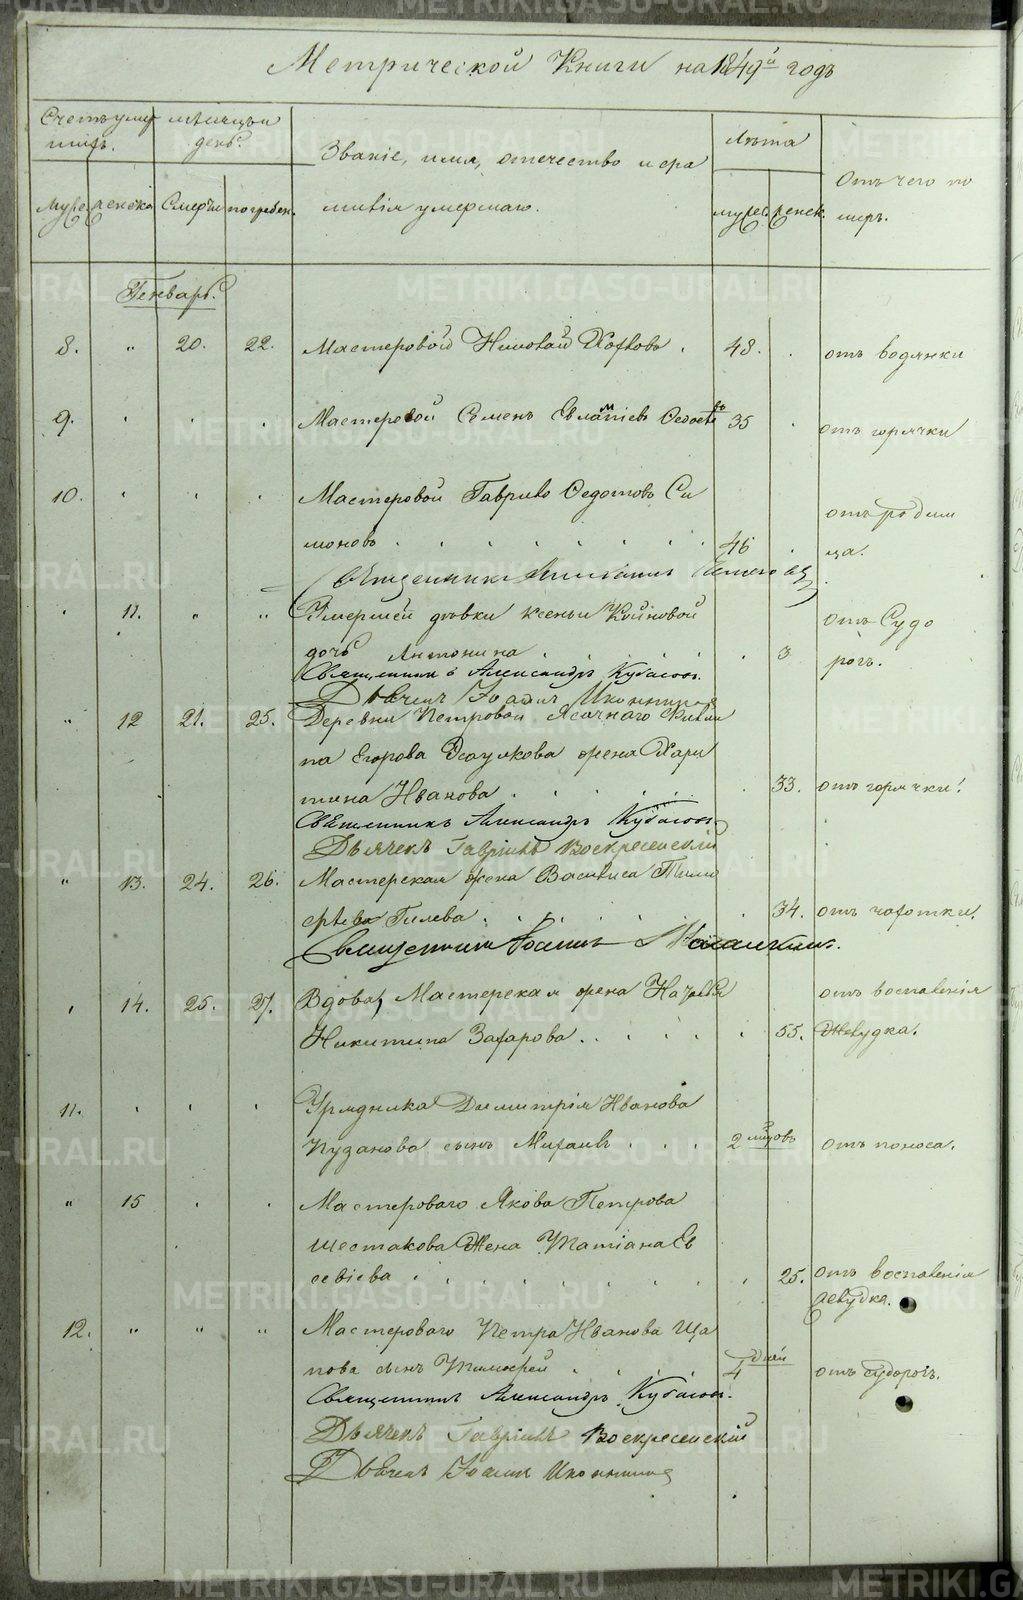 Метрической Книги на 1849й годъ
Счетъ умершихъ.
мѣсяцъ и день.
Званіе, имя, отечество и фамилія умершаго.
Лѣта
Отъ чего померъ.
муже. женска. Смерти погребен. муже. женск.
Генварь.
8. " 20. 22. Мастеровой 48. отъ водянки
9. Мастеровой Семенъ 35 отъ горячки
10. Мастеровой Гаврило Федотовъ Си
моновъ 46 отъ родимца.
Священникъ
11. " " Умершей дѣвки Ксеньи Койновой
дочь Антонина 3 отъ Судорогъ.
Священникъ Александръ Кубасовъ.
Дьячекъ Іоаннъ Иконниковъ
" 12 21. 25. Деревни Петровой Ясачнаго Филип
па Егорова жена Хари
тина Иванова 33. отъ горячки.
Священникъ Александръ Кубасовъ.
Дьячекъ Гавріилъ Воскресенскій
" 13. 24. 26. Мастерская жена Василиса Тимо
фѣева Гилева 34. отъ чахотки.
Священникъ Іоаннъ
14. 25. 27. Вдова, Мастерская жена Наталья
Никитина Захарова 55. отъ воспаленія Желудка.
11. Урядника Димитрія Иванова
Пузанова сынъ Михаилъ 2 мцовъ отъ поноса.
" 15 Мастероваго Якова Петрова
Шестакова Жена Татіана Ев
севіева 25. отъ воспаленія желудка.
12. " " " Мастероваго Петра Иванова Ща
пова сынъ Тимофей 4 дней отъ судорогъ.
Священникъ Александръ Кубасовъ.
Дьячекъ Гавріилъ Воскресенскій
Дьячекъ Іоаннъ Иконниковъ
METRIKI.GASO-URAL.RU